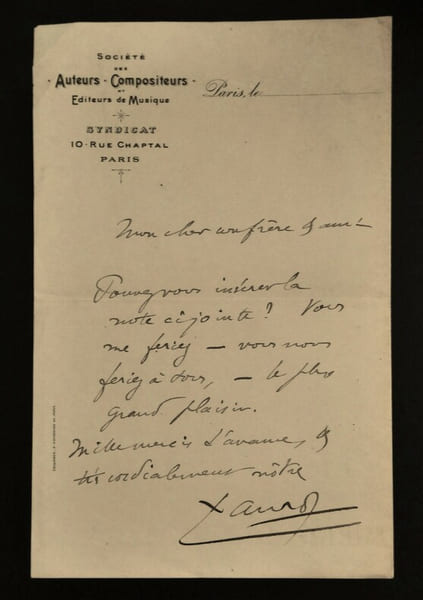 SOCIÉTÉ
DES
Auteurs - Compositeurs -
ET
Editeurs de Musique
SYNDICAT
10 · RUE CHAPTAL
PARIS
Paris, le
Mon cher confrère & ami -
Pouvez vous insérer la
note ci jointe ? Vous
me feriez — vous nous
feriez à tous, — le plus
grand plaisir.
Mille mercis d'avance, &
cordialement vôtre
Xanrof